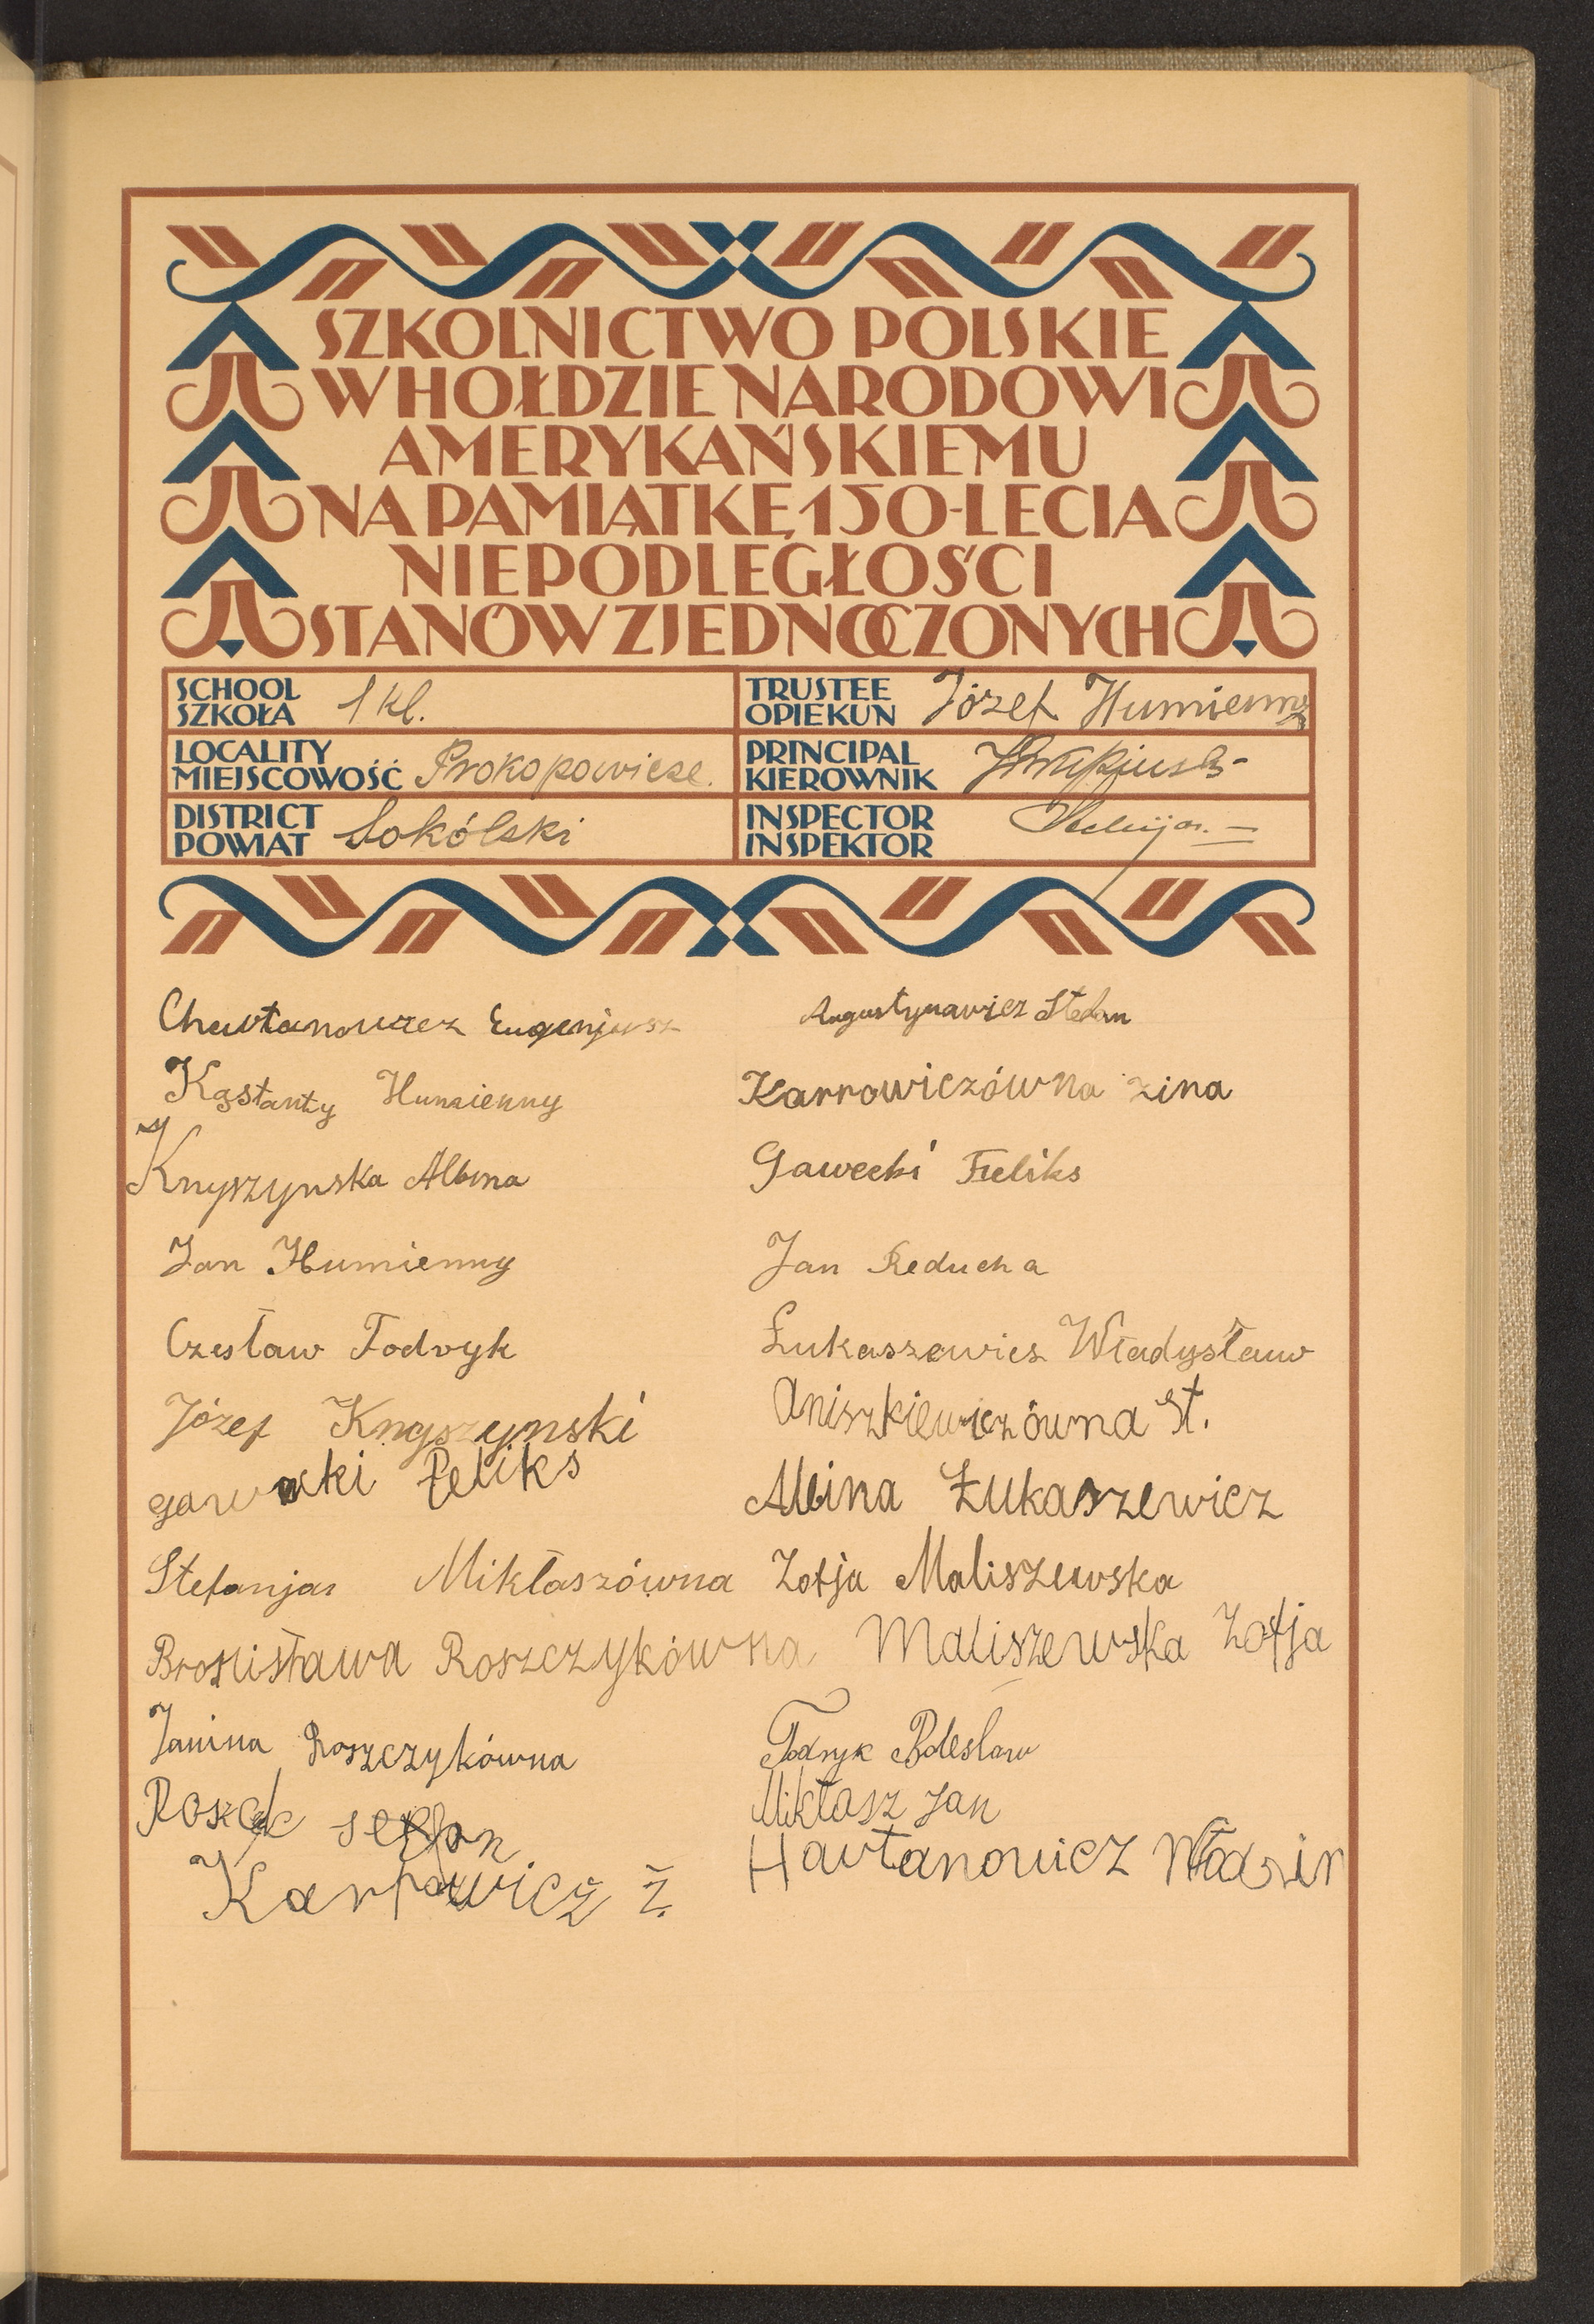 SZKOLNICTWO POLSKIE
W HOŁDZIE NARODOWI
AMERYKAŃSKIEMU
NA PAMIĄTKĘ 150-LECIA
NIEPODLEGŁOŚCI
STANÓW ZJEDNOCZONYCH
SCHOOL
SZKOŁA 1 kl.
TRUSTEE
OPIEKUN Józef Humienny
LOCALITY
MIEJSCOWOŚĆ Prokopowicze.
PRINCIPAL
KIEROWNIK
DISTRICT
POWIAT Sokólski
INSPECTOR
INSPEKTOR
Chwtanowicz Eugenjusz
Augustynawicz Stefan
Kąstanty Humienny
Karrowiczówna Zina
Knyszynska Albina
Gawecki Feliks
Jan Humienny
Jan Reducha
Czesław Todryk
Łukaszewicz Władysław
Józef Knyszynski
Aniszkiewiczówna St.
Feliks
Albina Łukaszewicz
Stefanja Mikłaszówna
Zofja Maliszewska
Bronisława Roszczykówna
Maliszewska Zofja
Janina Roszczykówna
Todryk Bolesław
Mikłasz Jan
Karpowicz Z.
Hawtanowicz